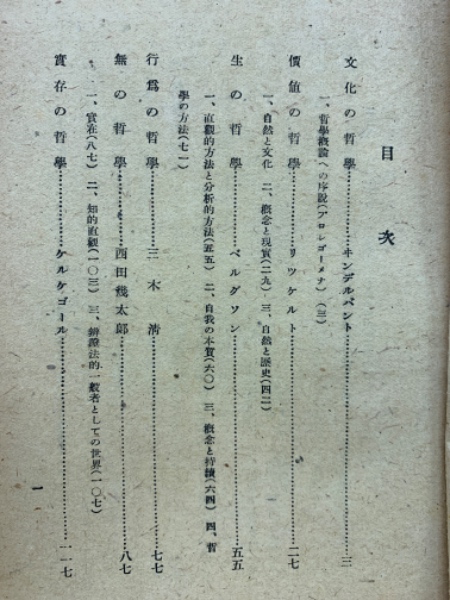 目次
文化の哲學……………ヰンデルバント……………三
一、哲學概論への序說(プロレゴーメナ)(三)
價値の哲學……………リツケルト……………二七
一、自然と文化 二、概念と現實(二九) 三、自然と歷史(四二)
生の哲學……………ベルグソン……………五五
一、直觀的方法と分析的方法(五五) 二、自我の本質(六〇) 三、概念と持續(六四) 四、哲
學の方法(七一)
行爲の哲學……………三木淸……………七七
無の哲學……………西田幾太郞……………八七
一、實在(八七) 二、知的直觀(一〇三) 三、辨證法的一般者としての世界(一〇七)
實存の哲學……………ケルケゴール……………一一七
一